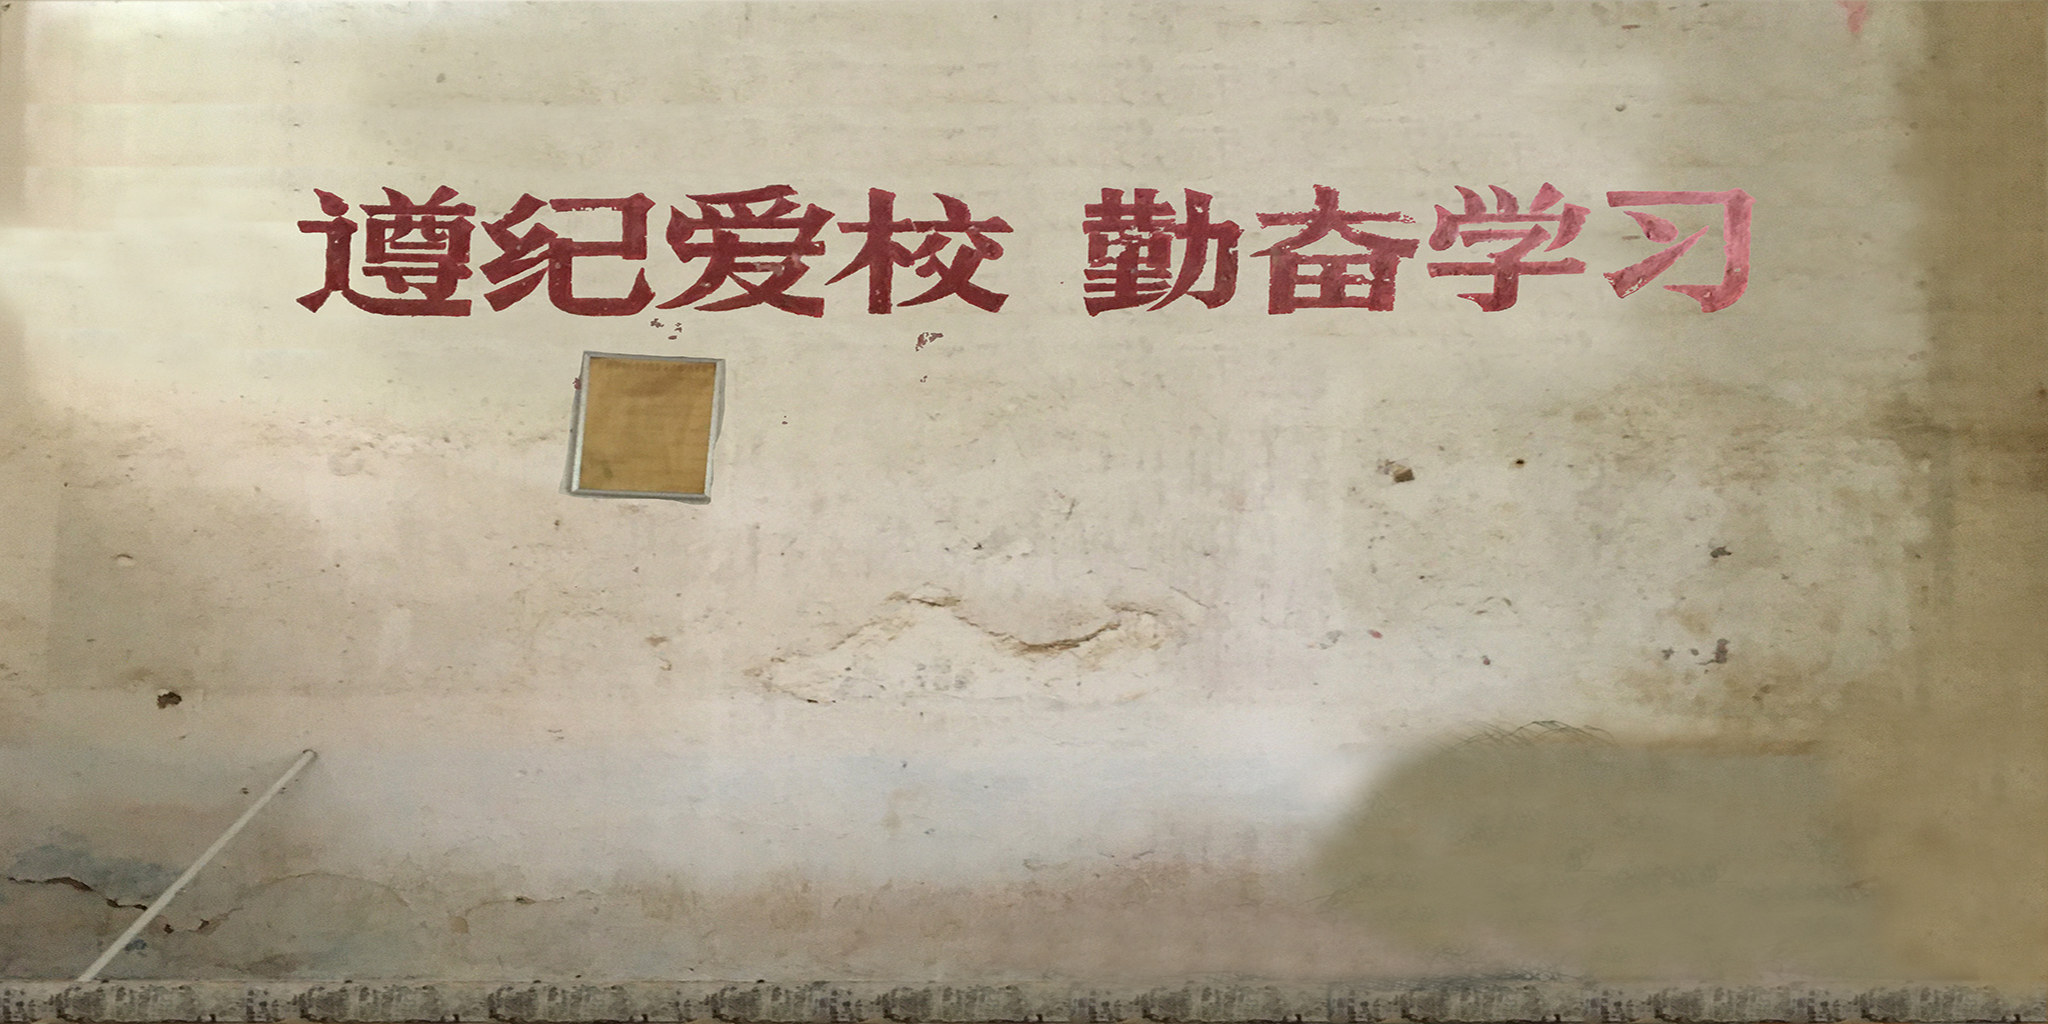 遵纪爱校 勤奋学习